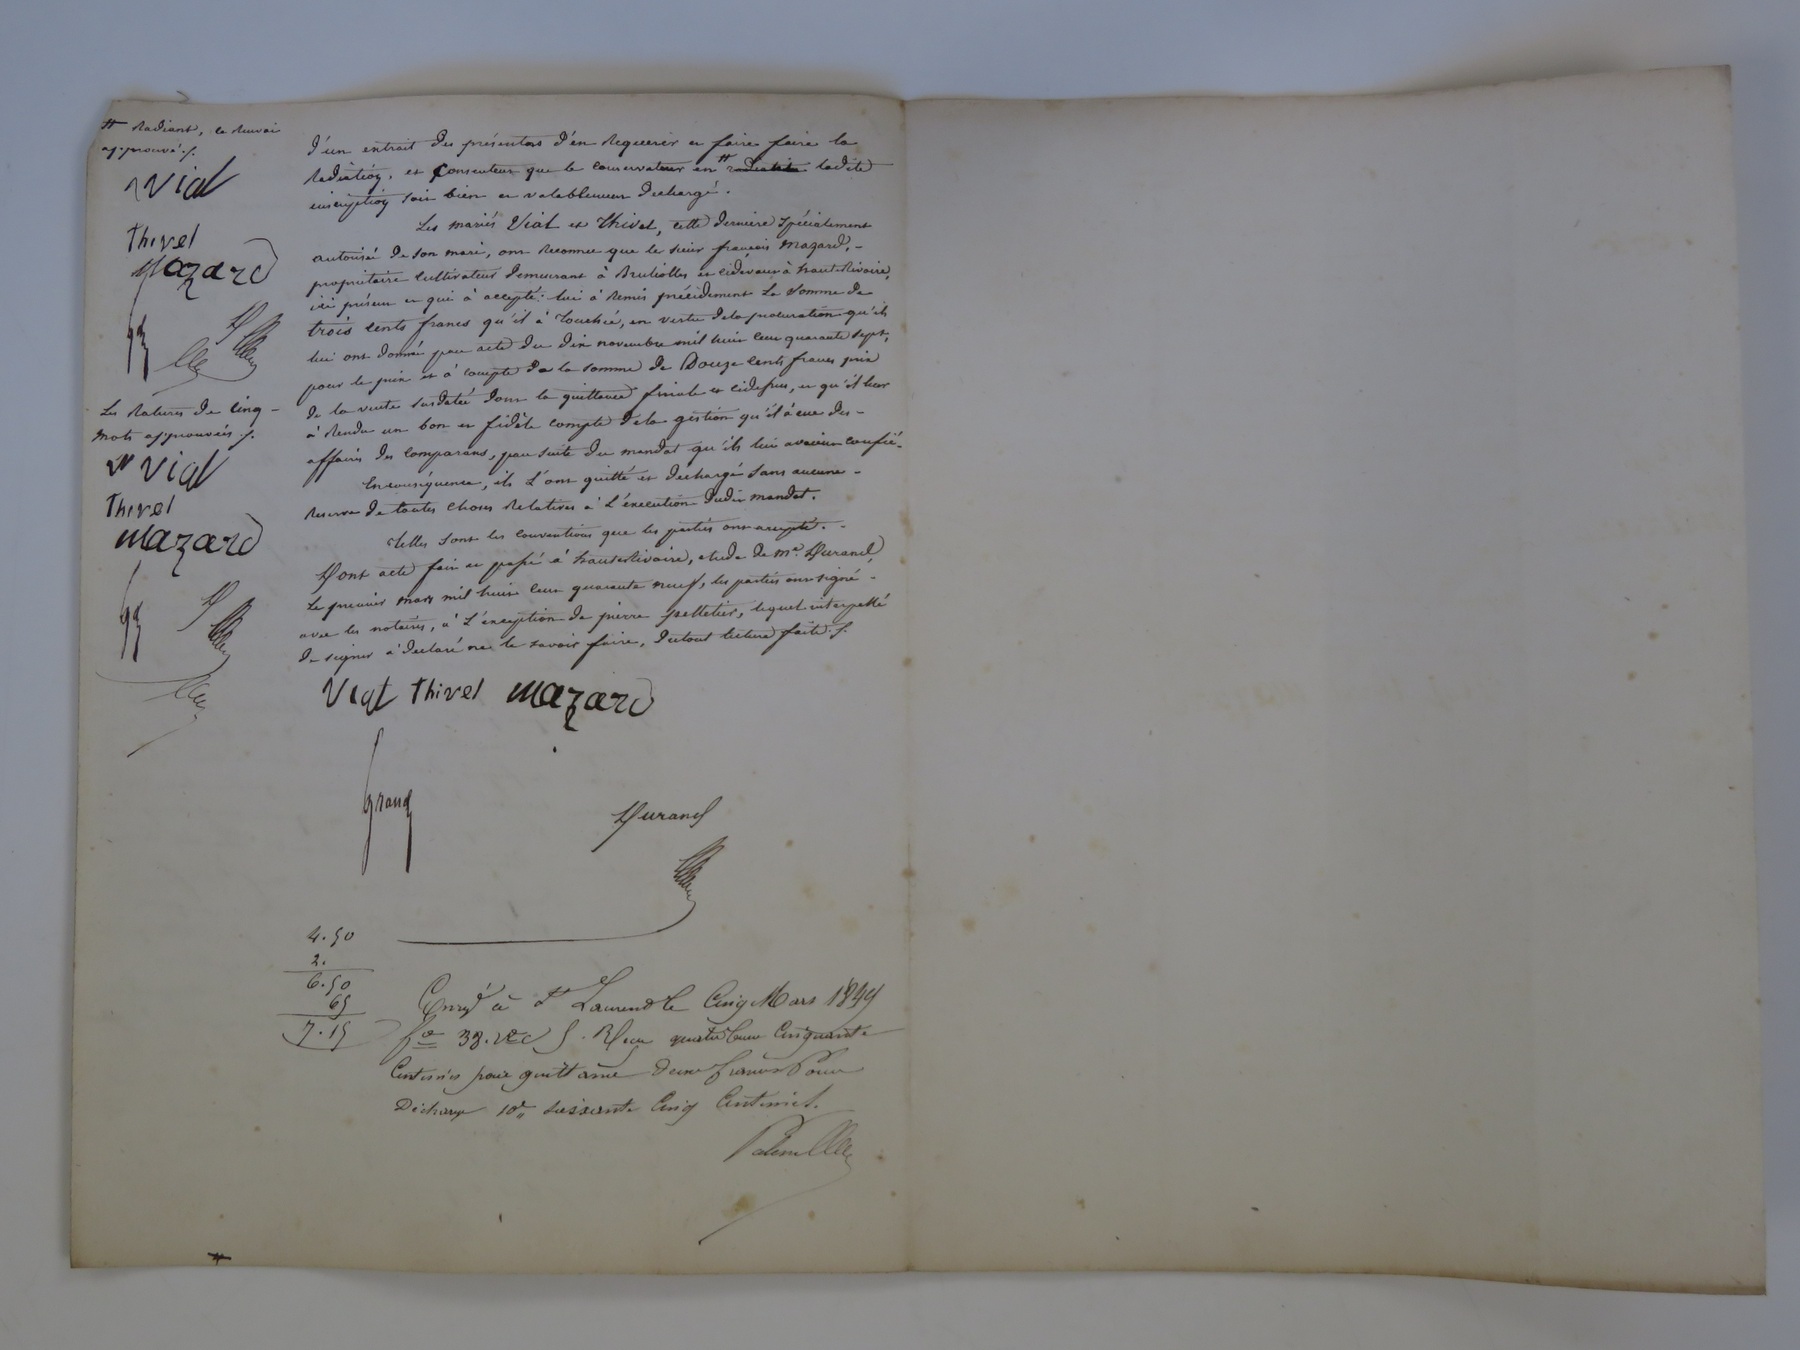 # Radiant, le Renvoi
approuvé ./.
Vial
Thivel
Mazard
Les Ratures de Cinq -
mots approuvées ./.
Vial
Thivel
Mazard
d'un extrait des présentes d'en Requerir et faire faire la
Radiation, et Consentent que le conservateur en # ladite
inscription soit bien et valablement déchargé.
Les mariés Vial et Thivel, cette dernière spécialement
autorisée de son mari, ont Reconnu que le sieur françois Mazard, -
propriétaire cultivateur demeurant à Brullioles et cidevant à hauteRivoire,
ici présent et qui à accepté: lui à Remis précédemment la Somme de
trois cents francs qu'il à Touchée, en vertu dela procuration qu'ils
lui ont donnée par acte du dix novembre mil huit cent quarante sept,
pour le prix et à compte de la somme de Douze cents francs prix
de la vente susdatée dont la quittance finale est cidessus, et qu'il leur
à Rendu un bon et fidèle compte dela gestion qu'il à eue des -
affaires des comparans, par suite du mandat qu'ils lui avaient confié. -
En conséquence, ils L'ont quitté et déchargé sans aucune -
Reserve de toutes choses Relatives à L'éxecution dudit mandat.
Telles sont les conventions que les parties ont accepté. -
Dont acte fait et passé à hauteRivoire, etude de me. Durand,
Le premier mars mil huit cent quarante neuf, les parties ont signé -
avec les notaires, à l'éxception de pierre pelletier, lequel interpellé
de signer à déclaré ne le savoir faire, dutout lecture faite ./.
Vial Thivel Mazard
Grand
Durand
4.50
2.
6.50
65
7.15
Enregé à St Laurent le Cinq Mars 1849
fo 38. Vo C 5. Reçu quatre francs Cinquante
Centimes pour quittance deux francs Pour
Décharge 10e soixante Cinq Centimes.